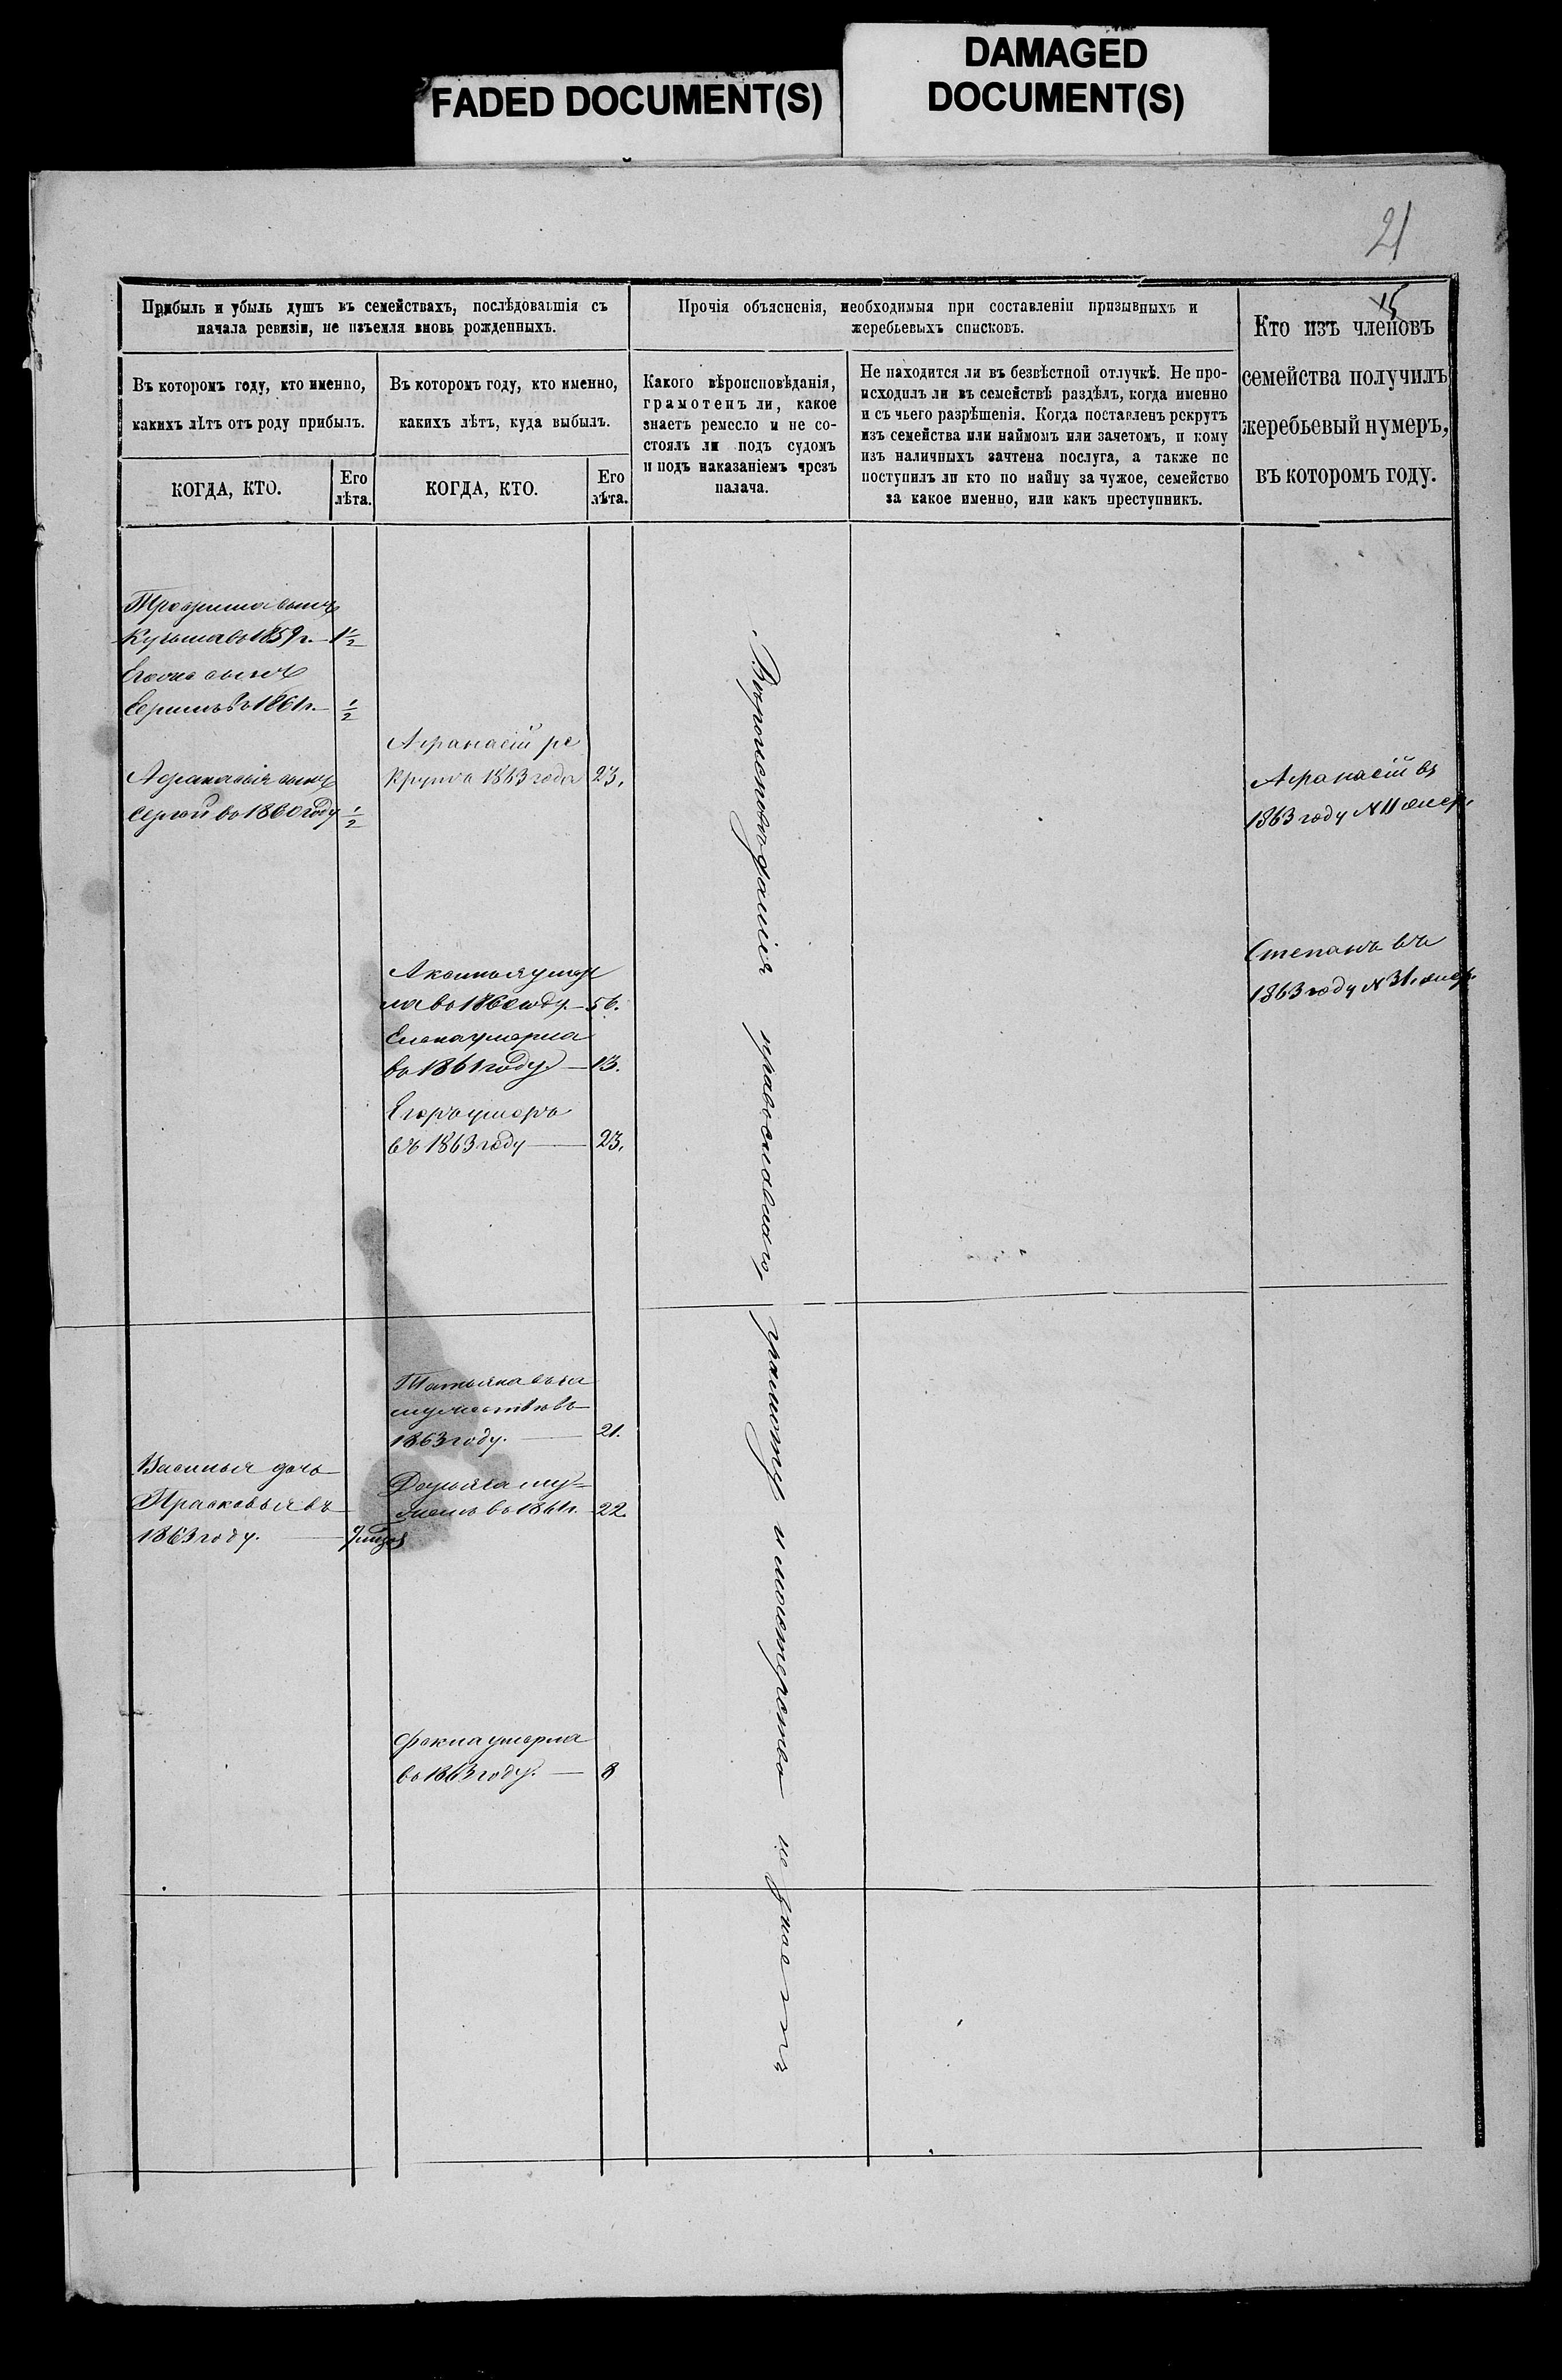 FADED DOCUMENT(S)
DAMAGED
DOCUMENT(S)
21
15
Прибыль и убыль душъ въ семействахъ, послѣдовавшія съ
начала ревизіи, не изъемля вновь рожденныхъ.
Прочія объясненія, необходимыя при составленіи призывныхъ и
жеребьевыхъ списковъ.
Кто изъ членовъ
семейства получилъ
жеребьевый нумеръ,
въ которомъ году.
Въ которомъ году, кто именно,
какихъ лѣтъ отъ роду прибылъ.
Въ которомъ году, кто именно,
какихъ лѣтъ, куда выбылъ.
Какого вѣроисповѣданія,
грамотенъ ли, какое
знаетъ ремесло и не со-
стоялъ ли подъ судомъ
и подъ наказаніемъ чрезъ
палача.
Не находится ли въ безвѣстной отлучкѣ. Не про-
исходилъ ли въ семействѣ раздѣлъ, когда именно
и съ чьего разрѣшенія. Когда поставленъ рекрутъ
изъ семейства или наймомъ или зачетомъ, и кому
изъ наличныхъ зачтена послуга, а также не
поступилъ ли кто по найму за чужое, семейство
за какое именно, или какъ преступникъ.
КОГДА, КТО.
Его
лѣта.
КОГДА, КТО.
Его
лѣта.
сынъ
Кузьма въ 1859 г. — 1 1/2
сынъ
въ 1861 г. — 1/2
Афанасія сынъ
Сергѣй въ 1860 году 1/2
Афанасій ре
крутъ 1863 года 23.
Аксинья умер
ла въ 1860 году. — 56.
Елена умерла
въ 1861 году — 13.
Егоръ умеръ
въ 1863 году — 23.
Татьяна
въ
1863 году. — 21.
Василья дочь
Прасковья въ
1863 году. —
въ 1861 г. 22.
Фекла умерла
въ 1863 году. — 8
Вѣроисповѣданія православнаго, грамоту и мастерства не знаетъ
Афанасій въ
1863 году № 11 жер.
Степанъ въ
1863 году № 31. жер.